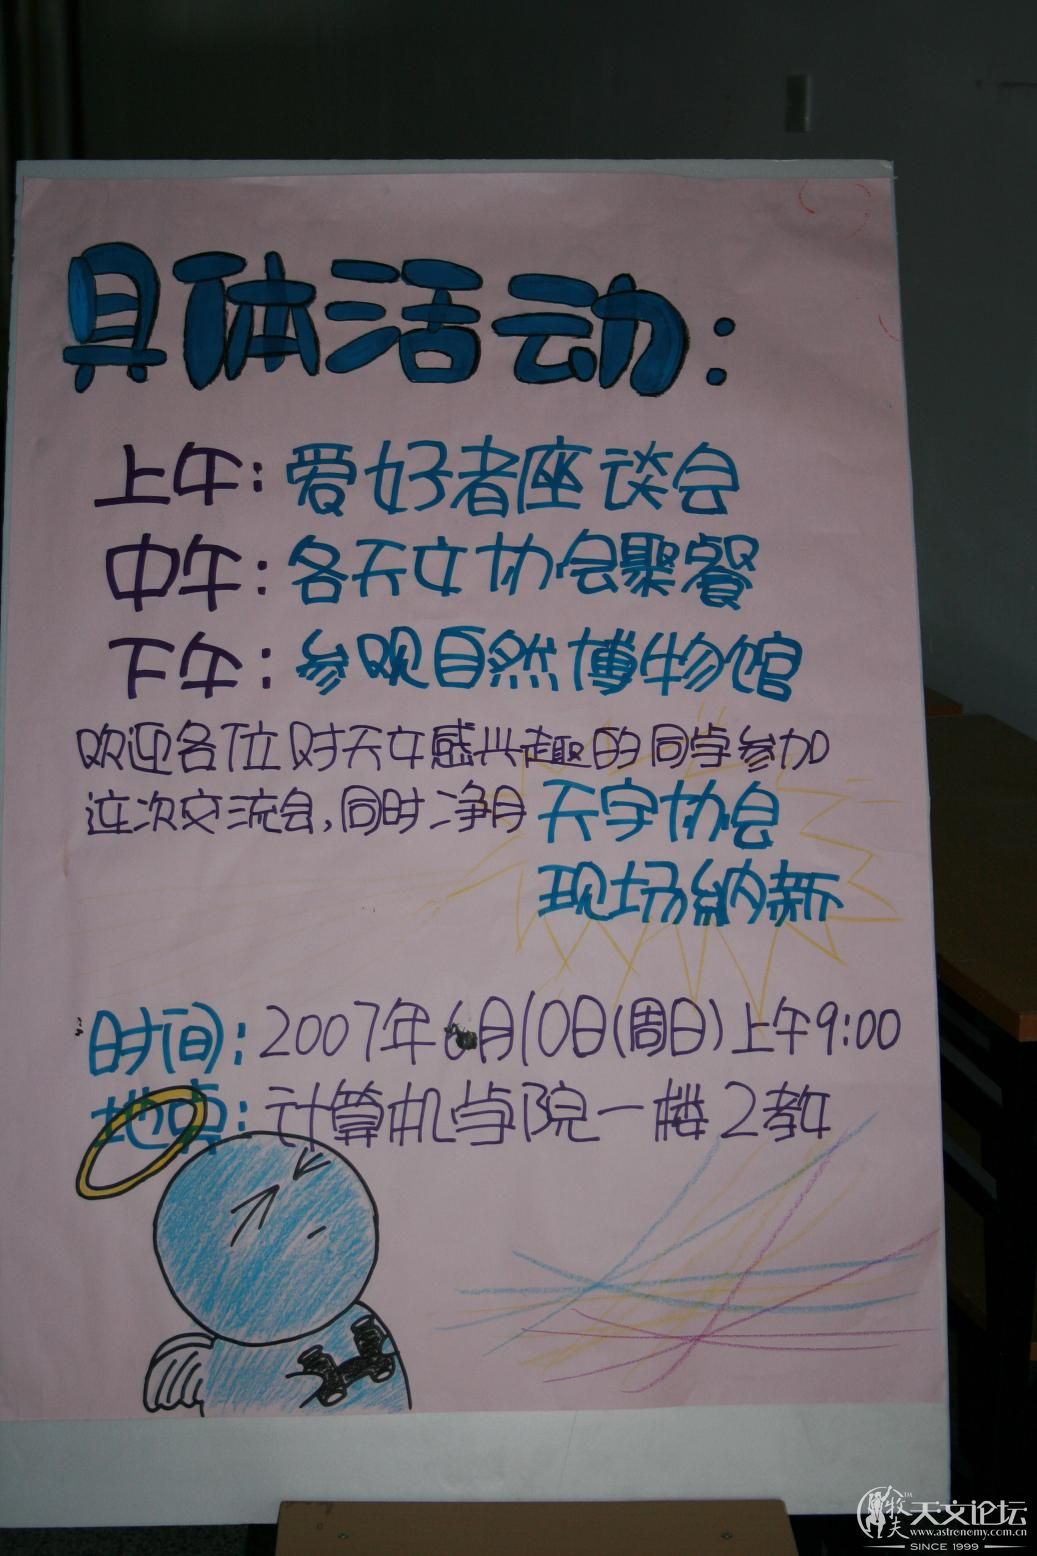 具体活动:
上午:爱好者座谈会
中午:各天文协会聚餐
下午:参观自然博物馆
欢迎各位对天文感兴趣的同学参加
这次交流会,同时净月天宇协会
现场納新
时间:2007年6月10日(周日)上午9:00
地点:计算机学院一楼2教
牧夫天文论坛
www.astronomy.com.cn
SINCE 1999